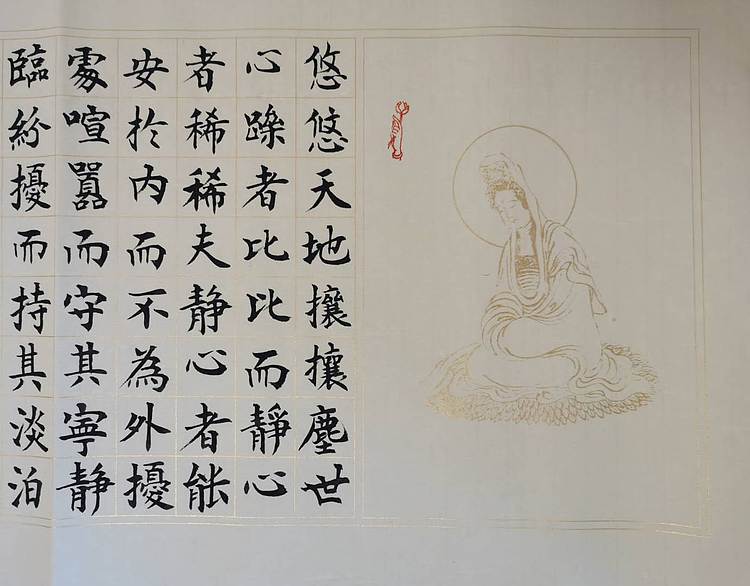 悠悠天地攘攘塵世
心躁者比比而靜心
者稀稀夫靜心者能
安於內而不為外擾
處喧囂而守其寧靜
臨紛擾而持其淡泊